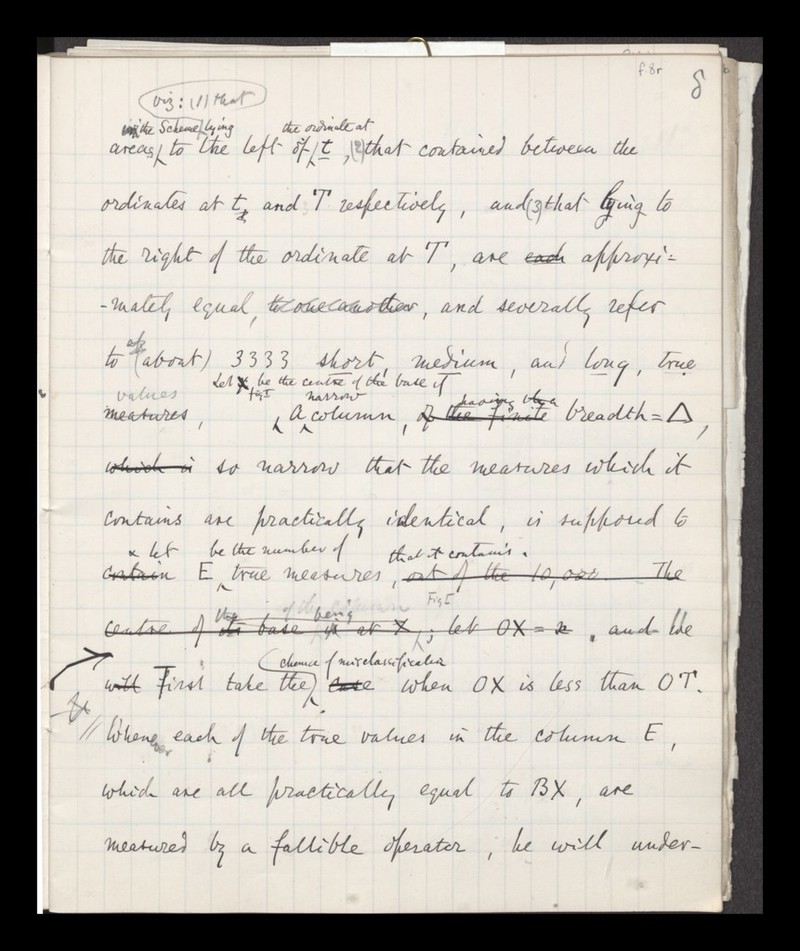 f. 8r
8
viz: (1) that
in the Scheme lying the ordinate at
areas, to the left of t, (2) that contained between the
ordinates at t, and T respectively, and (3) that lying to
the right of the ordinate at T, are each approxi=
-mately equal, to one another, and severally refer
to (about) 3333 short, medium, and long, true
values Let X be the centre of the base of
Fig I narrow having
measures, A column, of the finite breadth = Δ,
which is so narrow that the measures which it
contains are practically identical, is supposed to
& let be the number of that it contains.
contain E true measures, out of the 10,000. The
the of the column being Fig I
centre of its base is at X, ; let OX = x, and We
chance of misclassification
will First take the case when OX is less than OT.
Whenever each of the true values in the column E,
which are all practically equal to BX, are
measured by a fallible operator, he will under-